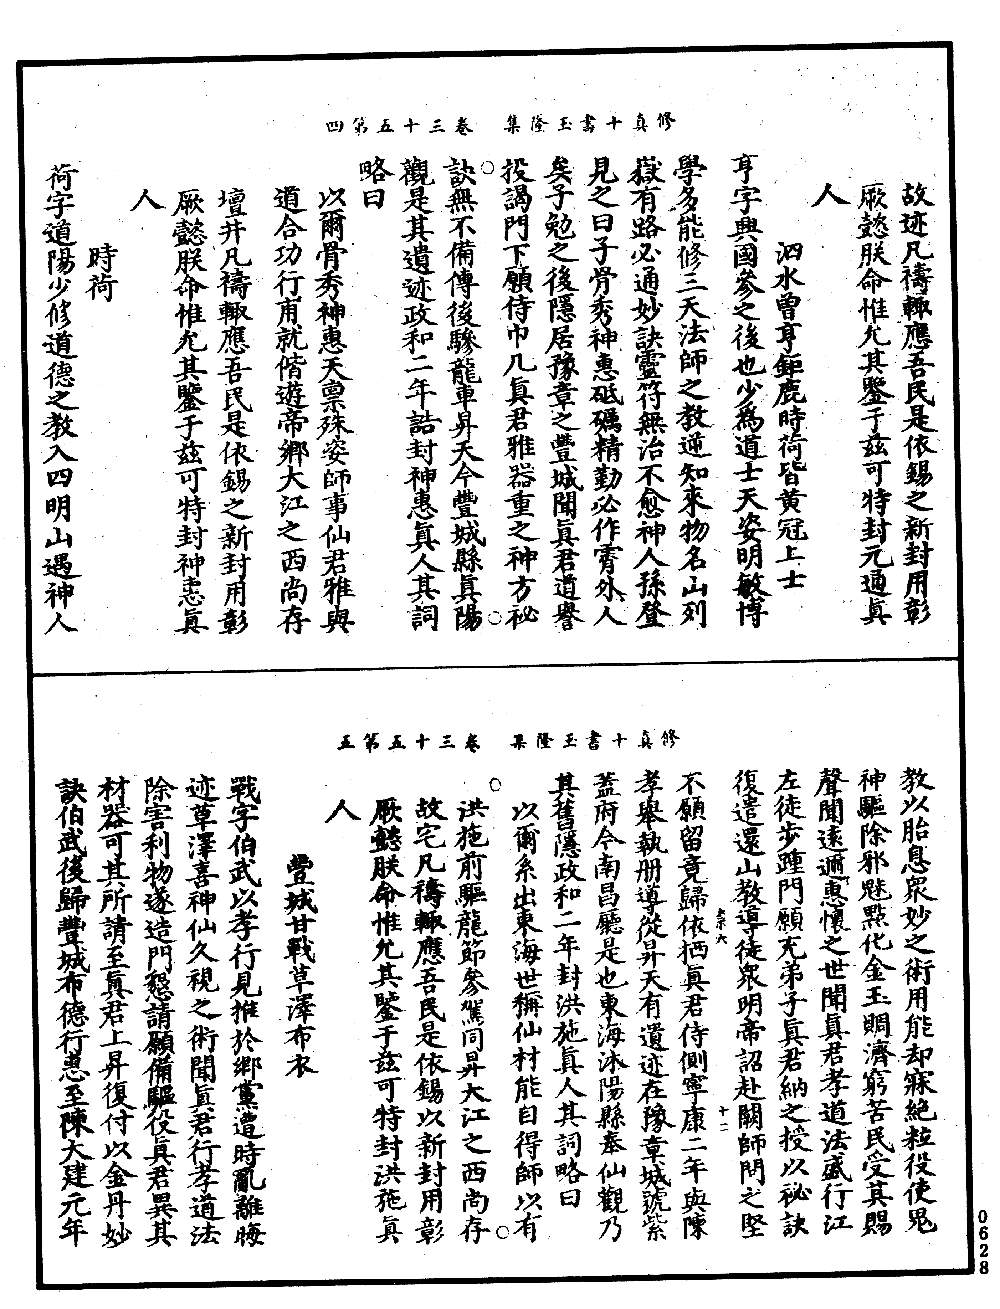 修真十書玉隆集　卷三十五第四
故迹凡禱輒應吾民是依錫之新封用彰
厥懿朕命惟允其鑒于兹可特封元通眞
人
泗水曾亨鉅鹿時荷皆黄冠上士
亨字興國參之後也少爲道士天姿明敏博
學多能修三天法師之教通知來物名山列
嶽有路必通妙訣靈符無治不愈神人孫登
見之曰子骨秀神惠砥礪精勤必作霄外人
矣子勉之後隱居豫章之豐城聞眞君道譽
投謁門下願侍巾几眞君雅器重之神方祕
訣無不備傳後驂龍車昇天今豐城縣眞陽
觀是其遺迹政和二年誥封神惠眞人其詞
略曰
以爾骨秀神惠天禀殊姿師事仙君雅與
道合功行甫就偕遊帝鄉大江之西尚存
壇井凡禱輒應吾民是依錫之新封用彰
厥懿朕命惟允其鑒于兹可特封神惠眞
人
時荷
荷字道陽少修道德之教入四明山遇神人
修真十書玉隆集　卷三十五第五
教以胎息衆妙之術用能却寐絶粒役使鬼
神驅除邪魅點化金玉賙濟窮苦民受其賜
聲聞遠邇惠懷之世聞眞君孝道法盛行江
左徒步踵門願充弟子眞君納之授以祕訣
復遣還山教導徒衆明帝詔赴闕師問之堅
不願留竟歸依栖眞君侍側寧康二年與陳
孝舉執册導從昇天有遺迹在豫章城號紫
蓋府今南昌廳是也東海沭陽縣奉仙觀乃
其舊隱政和二年封洪施眞人其詞略曰
以爾系出東海世稱仙材能自得師以有
洪施前驅龍節參駕同昇大江之西尚存
故宅凡禱輒應吾民是依錫以新封用彰
厥懿朕命惟允其鑒于兹可特封洪施眞
人
豐城甘戰草澤布衣
戰字伯武以孝行見推於鄉黨遭時亂離晦
迹草澤喜神仙久視之術聞眞君行孝道法
除害利物遂造門懇請願備驅役眞君異其
材器可其所請至眞君上昇復付以金丹妙
訣伯武後歸豐城布德行惠至陳大建元年
十二
0628